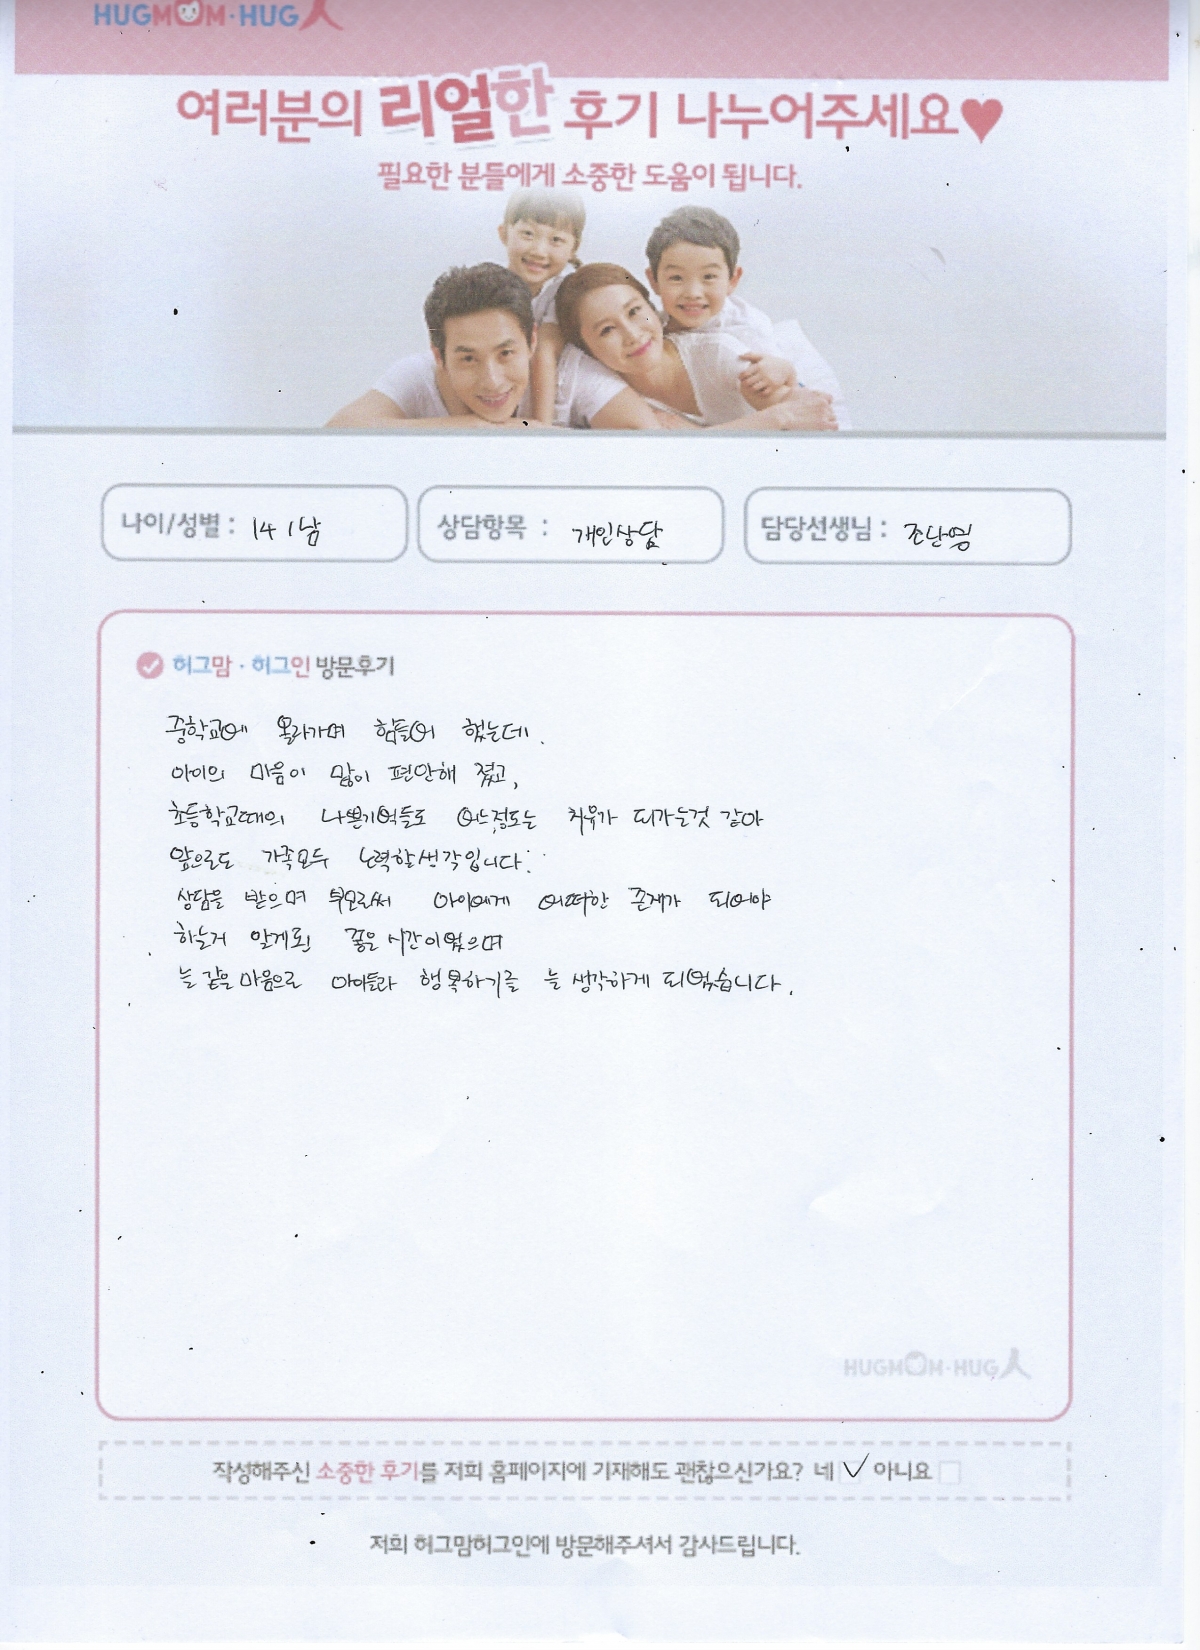 HUGMOM·HUG人
여러분의 리얼한 후기 나누어주세요♥
필요한 분들에게 소중한 도움이 됩니다.
나이/성별 : 14 / 남
상담항목 : 개인상담
담당선생님 : 조난영
허그맘 · 허그인 방문후기
중학교에 올라가며 힘들어 했는데.
아이의 마음이 많이 편안해 졌고,
초등학교때의 나쁜기억들도 어느정도는 치유가 되가는것 같아
앞으로도 가족모두 노력할생각입니다.
상담을 받으며 부모로써 아이에게 어떠한 존재가 되어야
하는거 알게된 좋은 시간이었으며
늘 같은 마음으로 아이들과 행복하기를 늘 생각하게 되었습니다.
HUGMOM·HUG人
작성해주신 소중한 후기를 저희 홈페이지에 기재해도 괜찮으신가요? 네 ✓ 아니요 □
저희 허그맘허그인에 방문해주셔서 감사드립니다.